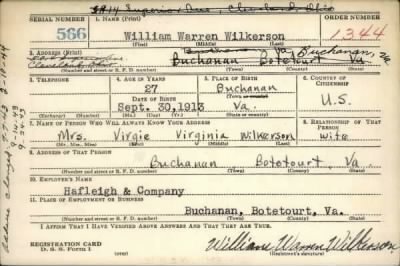 3914 Superior Ave - Cleveland Ohio
SERIAL NUMBER 1. NAME (Print) ORDER NUMBER
566 William Warren Wilkerson 1344
(First) (Middle) (Last)
2. ADDRESS (Print) Buchanan, Va.
Cleveland Ohio Buchanan Botetourt Va.
(Number and street or R. F. D. number) (Town) (County) (State)
3. TELEPHONE 4. AGE IN YEARS 5. PLACE OF BIRTH 6. COUNTRY OF CITIZENSHIP
27 Buchanan
(Town or county)
DATE OF BIRTH
Sept. 30, 1913 Va. U.S.
(Exchange) (Number) (Mo.) (Day) (Yr.) (State or country)
7. NAME OF PERSON WHO WILL ALWAYS KNOW YOUR ADDRESS 8. RELATIONSHIP OF THAT PERSON
Mrs. Virgie Virginia Wilkerson Wife
(Mr., Mrs., Miss) (First) (Middle) (Last)
9. ADDRESS OF THAT PERSON
Buchanan Botetourt, Va.
(Number and street or R. F. D. number) (Town) (County) (State)
10. EMPLOYER'S NAME
Hafleigh & Company
11. PLACE OF EMPLOYMENT OR BUSINESS
Buchanan, Botetourt, Va.
(Number and street or R. F. D. number) (Town) (County) (State)
I AFFIRM THAT I HAVE VERIFIED ABOVE ANSWERS AND THAT THEY ARE TRUE.
REGISTRATION CARD
D. S. S. Form 1
William Warren Wilkerson
(Registrant's signature)